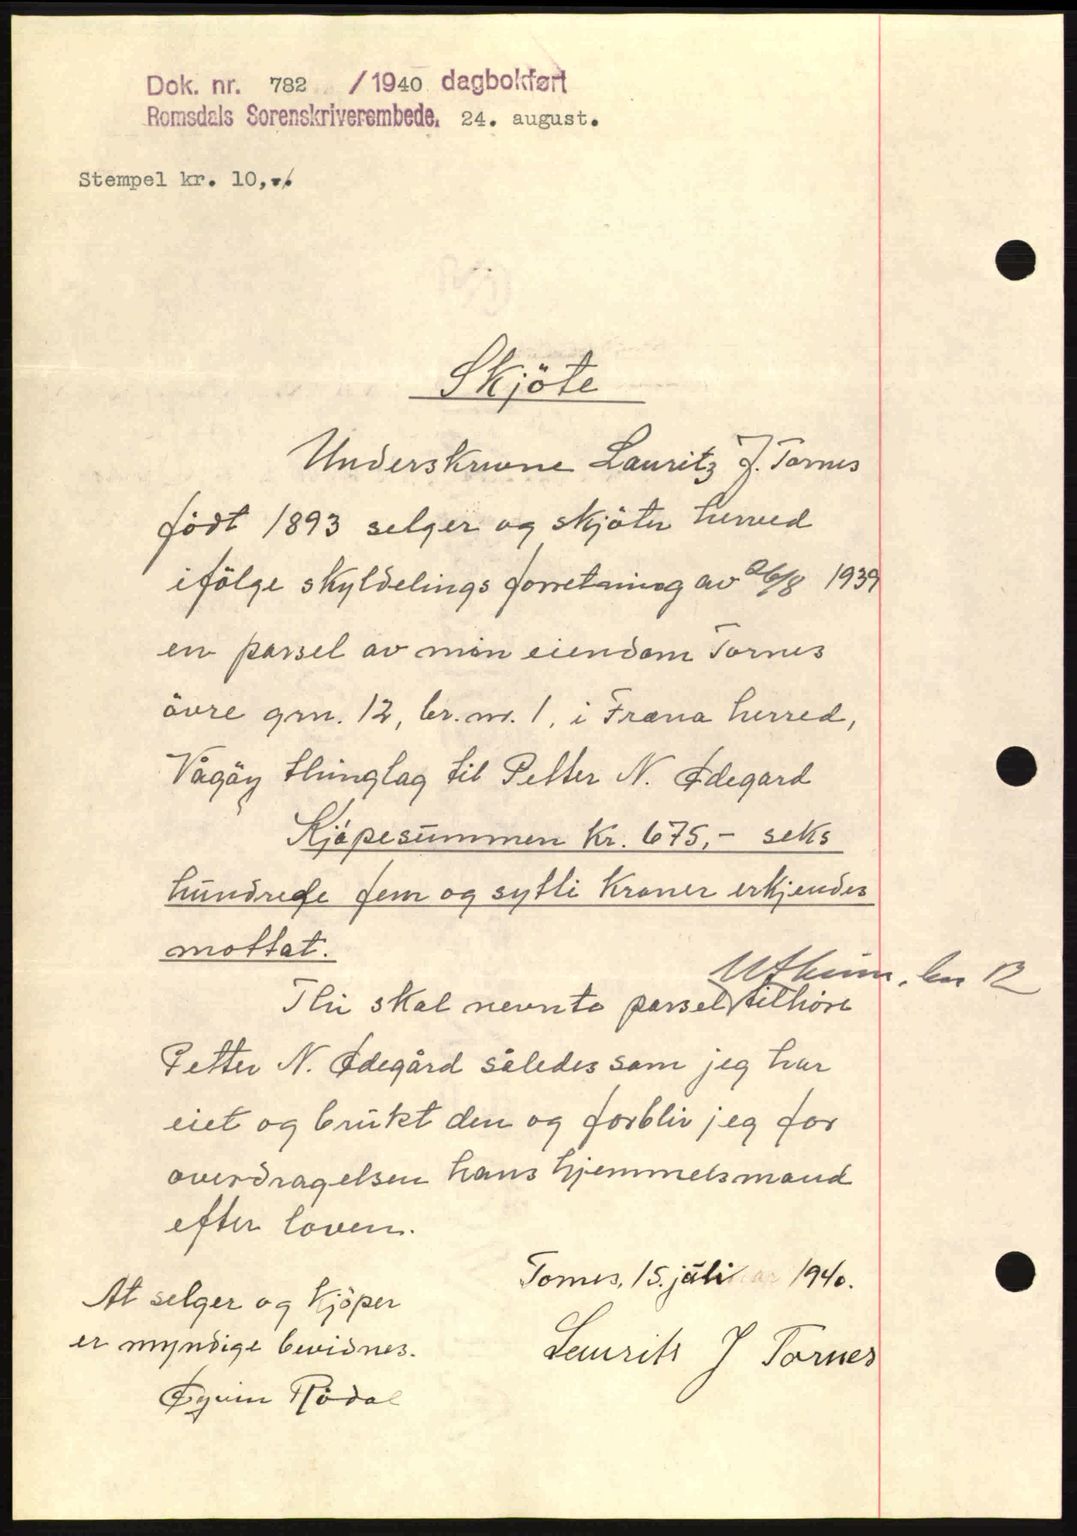 Dok. nr. 782 /1940 dagbokført
Romsdals Sorenskriverembede. 24. august.
Stempel kr. 10,-.
Skjöte
Underskrivne Lauritz J. Tornes
födt 1893 selger og skjöter herved
ifölge skyldelings forretning av 26/8 1939
en parsel av min eiendom Tornes
övre grn. 12, br. nr. 1. i Fræna herred,
Vågöy thinglag til Petter N. Ødegard
Kjöpesummen kr. 675,- seks
hundrede fem og sytti kroner erkjendes
mottat.
Thi skal nevnte parsel tilhöre
Petter N. Ødegård således som jeg har
eiet og brukt den og forblir jeg for
overdragelsen hans hjemmelsmand
efter loven.
Tornes, 15. juli 1940.
At selger og kjöper
er myndige bevidnes.
Laurits J Tornes
Rödal